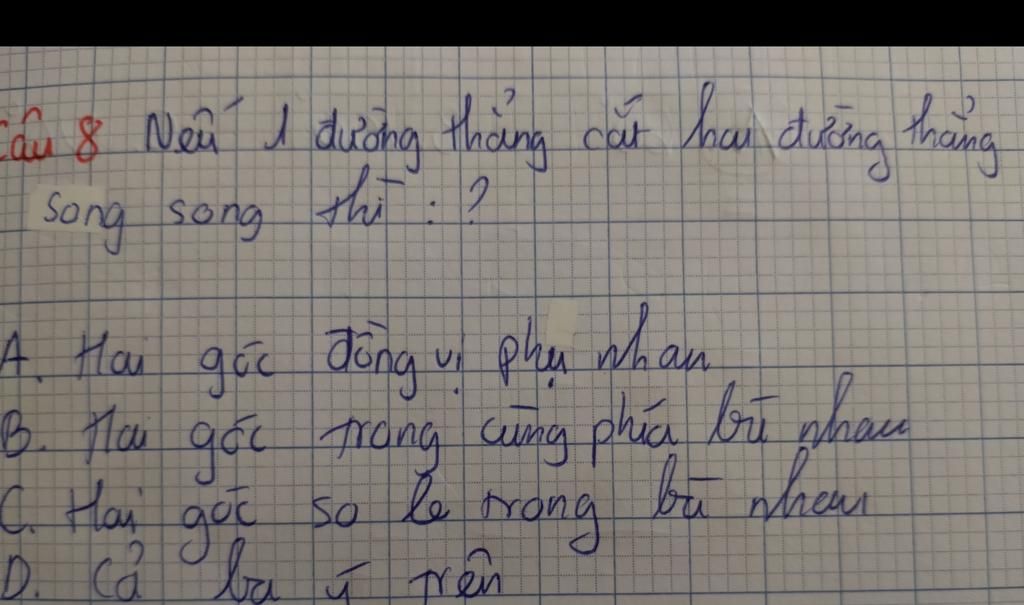 Câu 8 Nếu 1 đường thẳng cắt hai đường thẳng
song song thì : ?
A. Hai góc đồng vị phụ nhau
B. Hai góc trong cùng phía bù nhau
C. Hai góc so le trong bù nhau
D. Cả ba ý trên